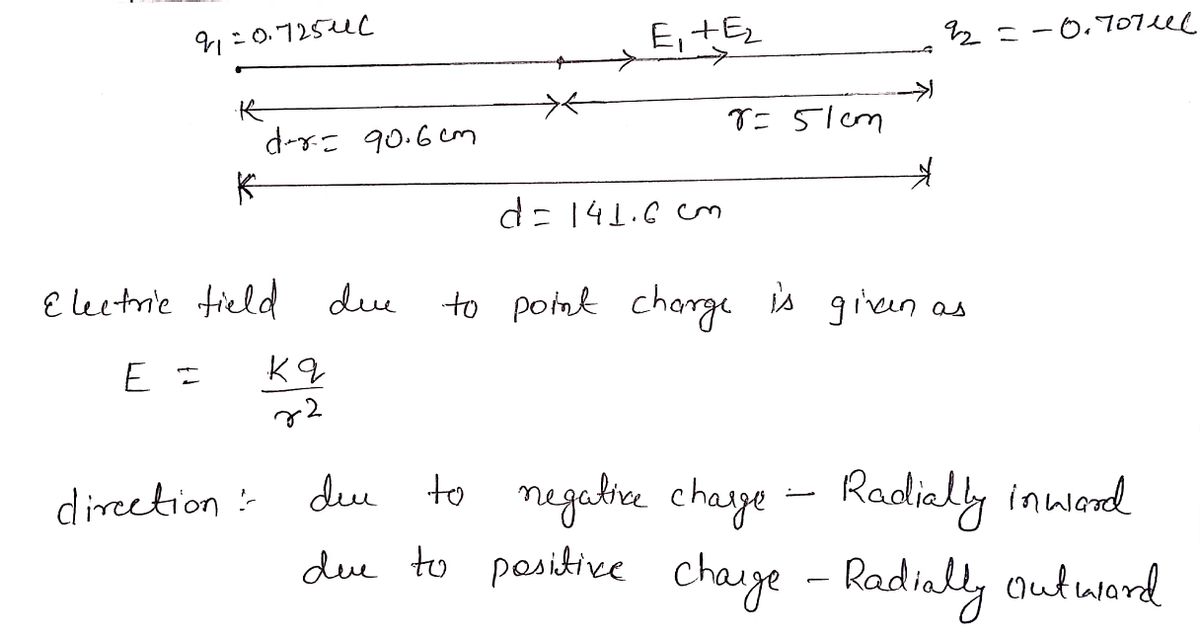 q₁ = 0.725μC
E₁ + E₂
q₂ = -0.707μC
d-r = 90.6 cm
r = 51cm
d = 141.6 cm
Electric field due to point charge is given as
E = Kq / r²
direction :- due to negative charge - Radially inward
due to positive charge - Radially outward